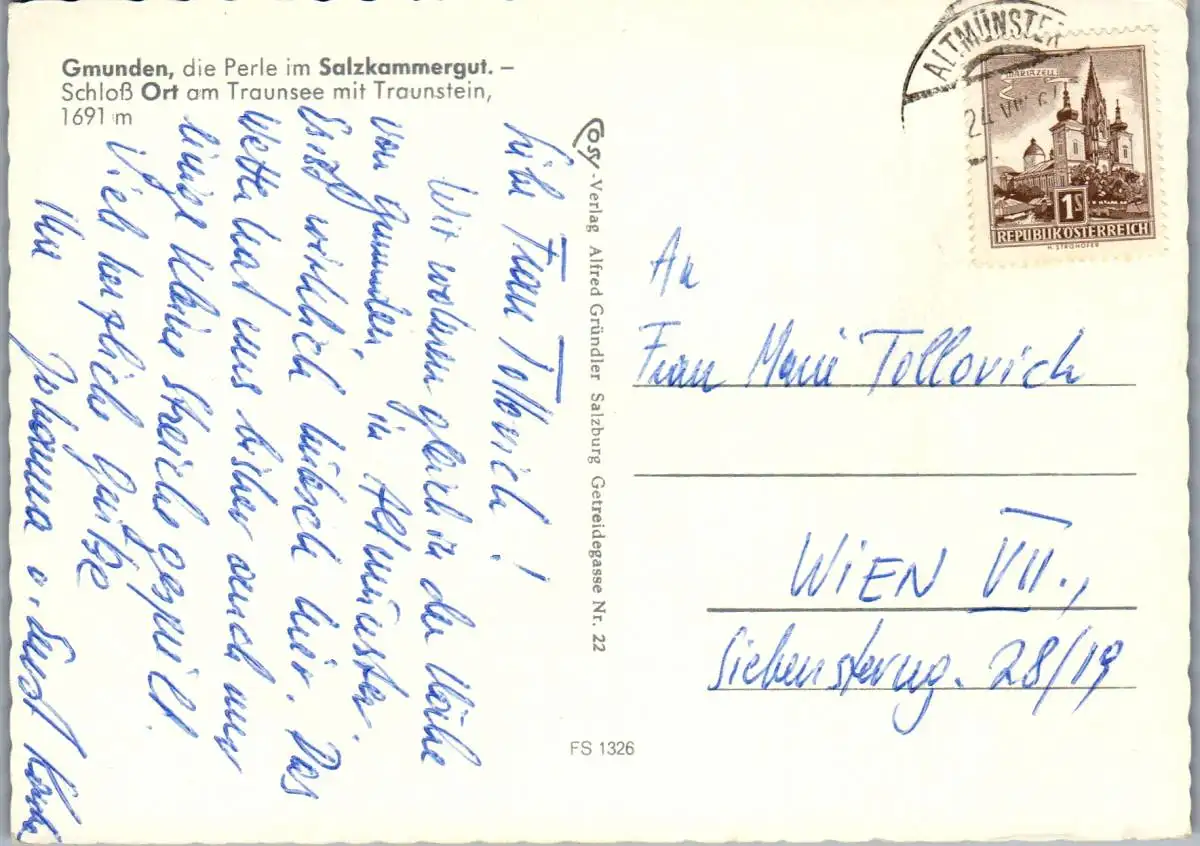 Gmunden, die Perle im Salzkammergut. –
Schloß Ort am Traunsee mit Traunstein,
1691 m
Liebe Frau Tollovich!
Wir wohnen gleich in der Nähe
von Gmunden in Altmünster.
Es ist wirklich hübsch hier. Das
Wetter hat uns bisher auch nur
einige kleine Streiche gespielt.
Viele herzliche Grüße
Ihre
Johanna u. Ernst
Cosy-Verlag Alfred Gründler Salzburg Getreidegasse Nr. 22
FS 1326
ALTMÜNSTER
24. VIII. 6
MARIAZELL
1S
REPUBLIK ÖSTERREICH
H. STROHOFER
An
Frau Marie Tollovich
WIEN VII.,
Siebensterng. 28/19